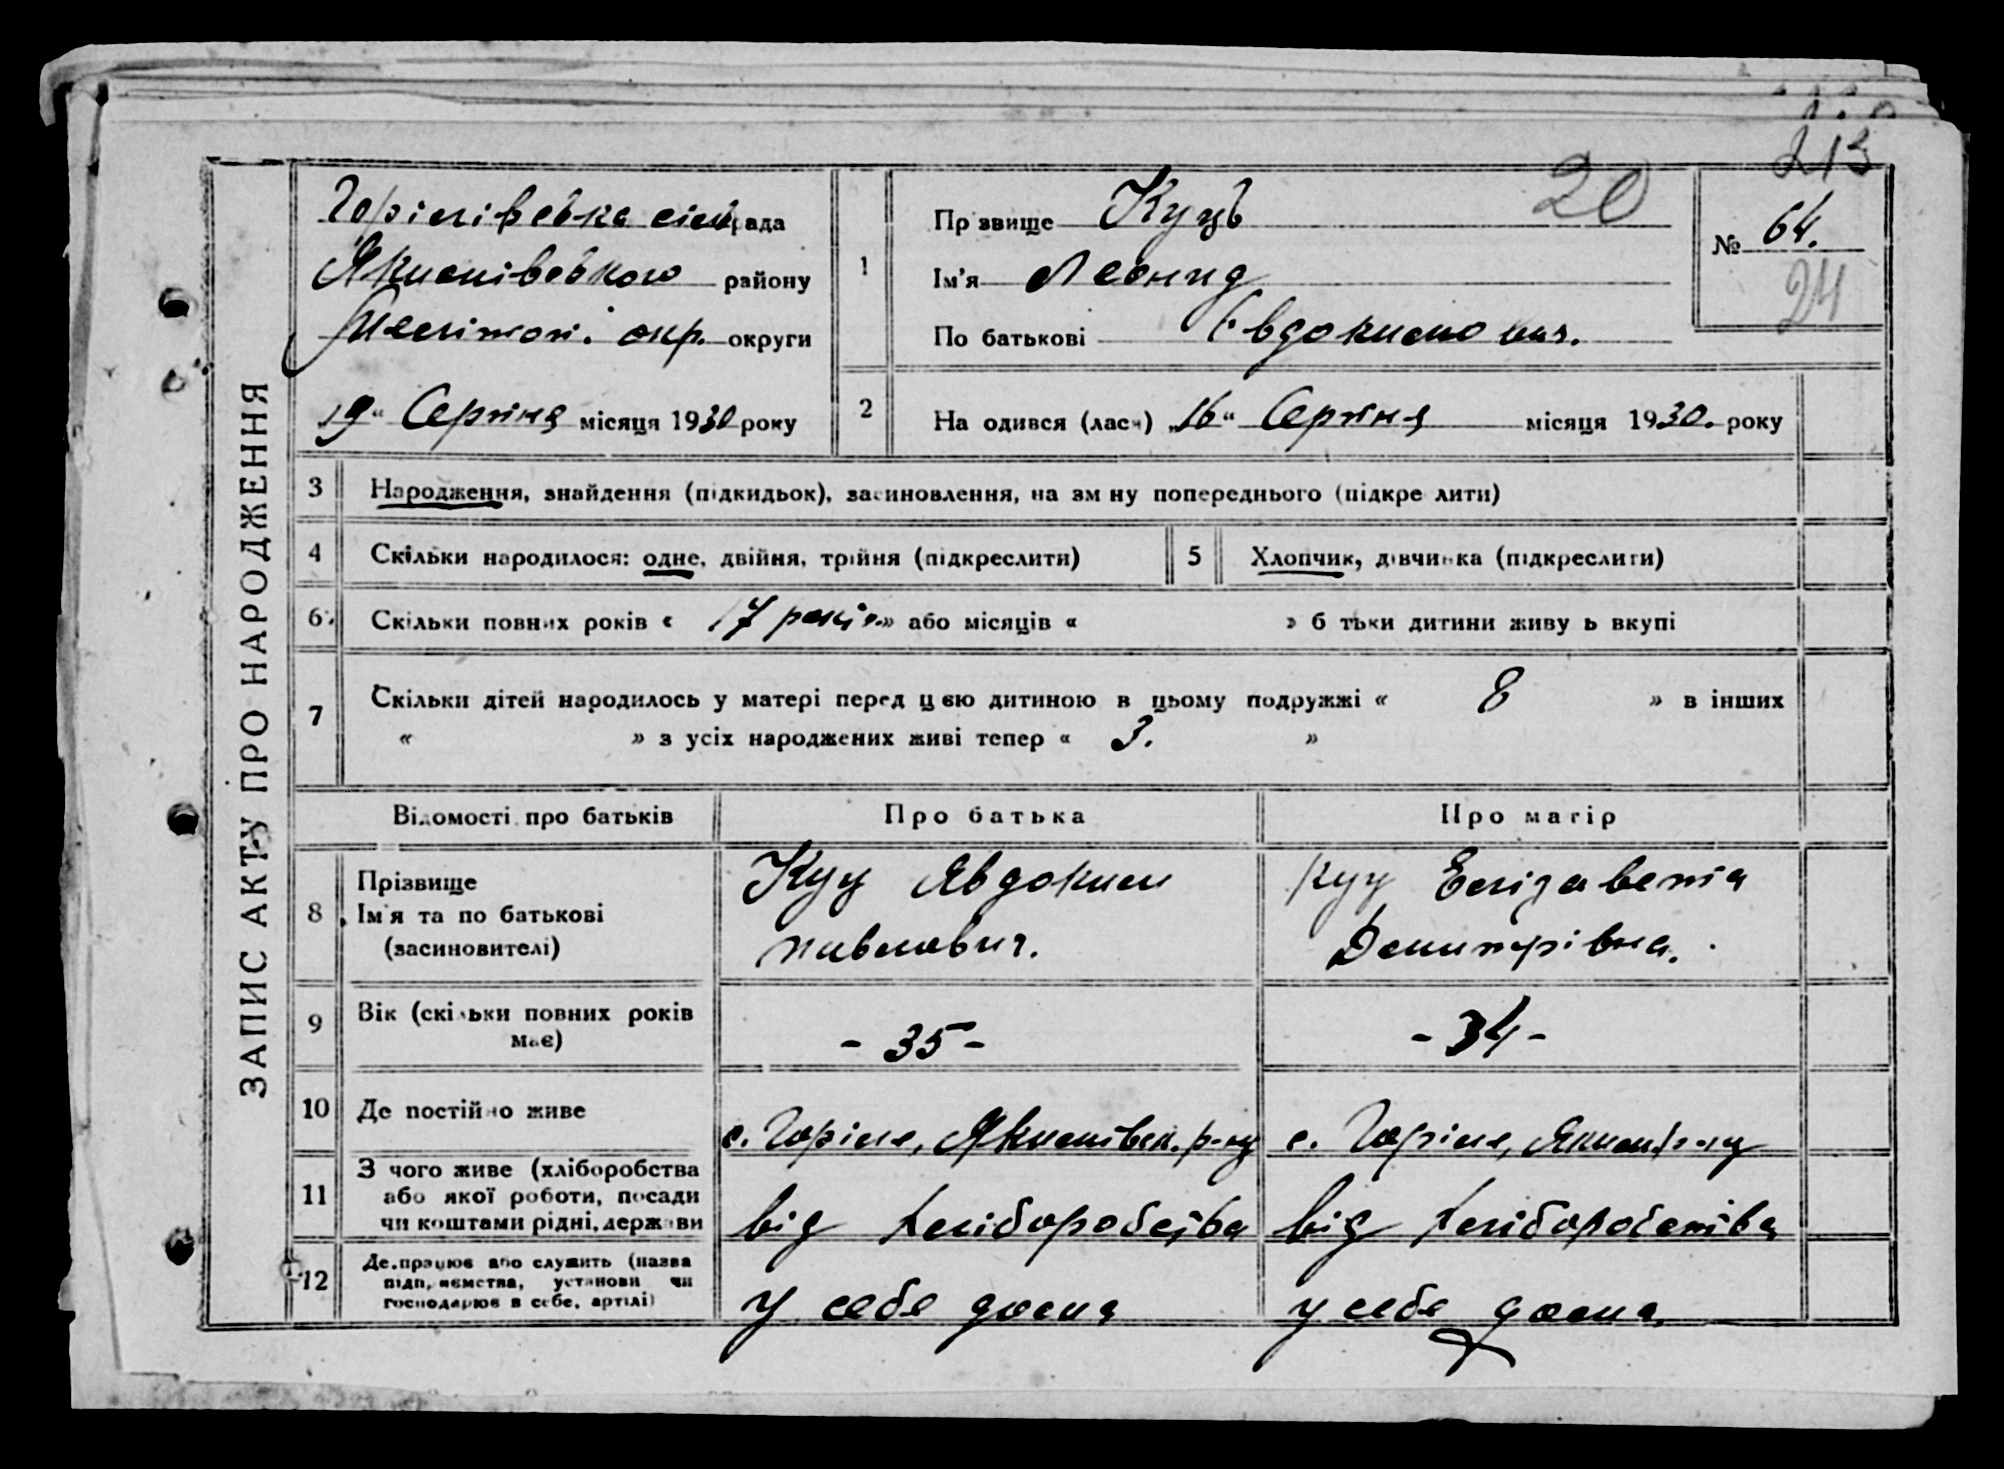 213
20
ЗАПИС АКТУ ПРО НАРОДЖЕННЯ
Горілівська сільрада
Якимівського району
Мелітоп. окр. округи
19 “ Серпня місяця 1930 року
1
Прзвище Куць
Ім'я Леонид
По батькові Євдокимович.
№ 64.
24
2
На одився (лась) „16“ Серпня місяця 1930. року
3 Народження, знайдення (підкидьок), засиновлення, на змну попереднього (підкрелити)
4 Скільки народилося: одне, двійня, трійня (підкреслити)
5 Хлопчик, дівчинка (підкреслити)
6. Скільки повних років « 17 років » або місяців « » бтьки дитини живуь вкупі
7 Скільки дітей народилось у матері перед цею дитиною в цьому подружжі « 8 » в інших
« » з усіх народжених живі тепер « 3. »
Відомості про батьків
Про батька
Про матір
8 Прізвище
Ім'я та по батькові
(засиновителі)
Куц Явдоким
Павлович.
Куц Елізавета
Демитрівна.
9 Вік (скільки повних років
має)
- 35 -
- 34 -
10 Де постійно живе
с. Горіле, Якимівськ. р-ну
с. Горіле, Яким. р-ну
11 З чого живе (хліборобства
або якої роботи, посади
чи коштами рідні, держави
від хліборобства
від хліборобства
12 Де працює або служить (назва
підприємства, установи чи
господарює в себе, артілі)
у себе дома
у себе дома.